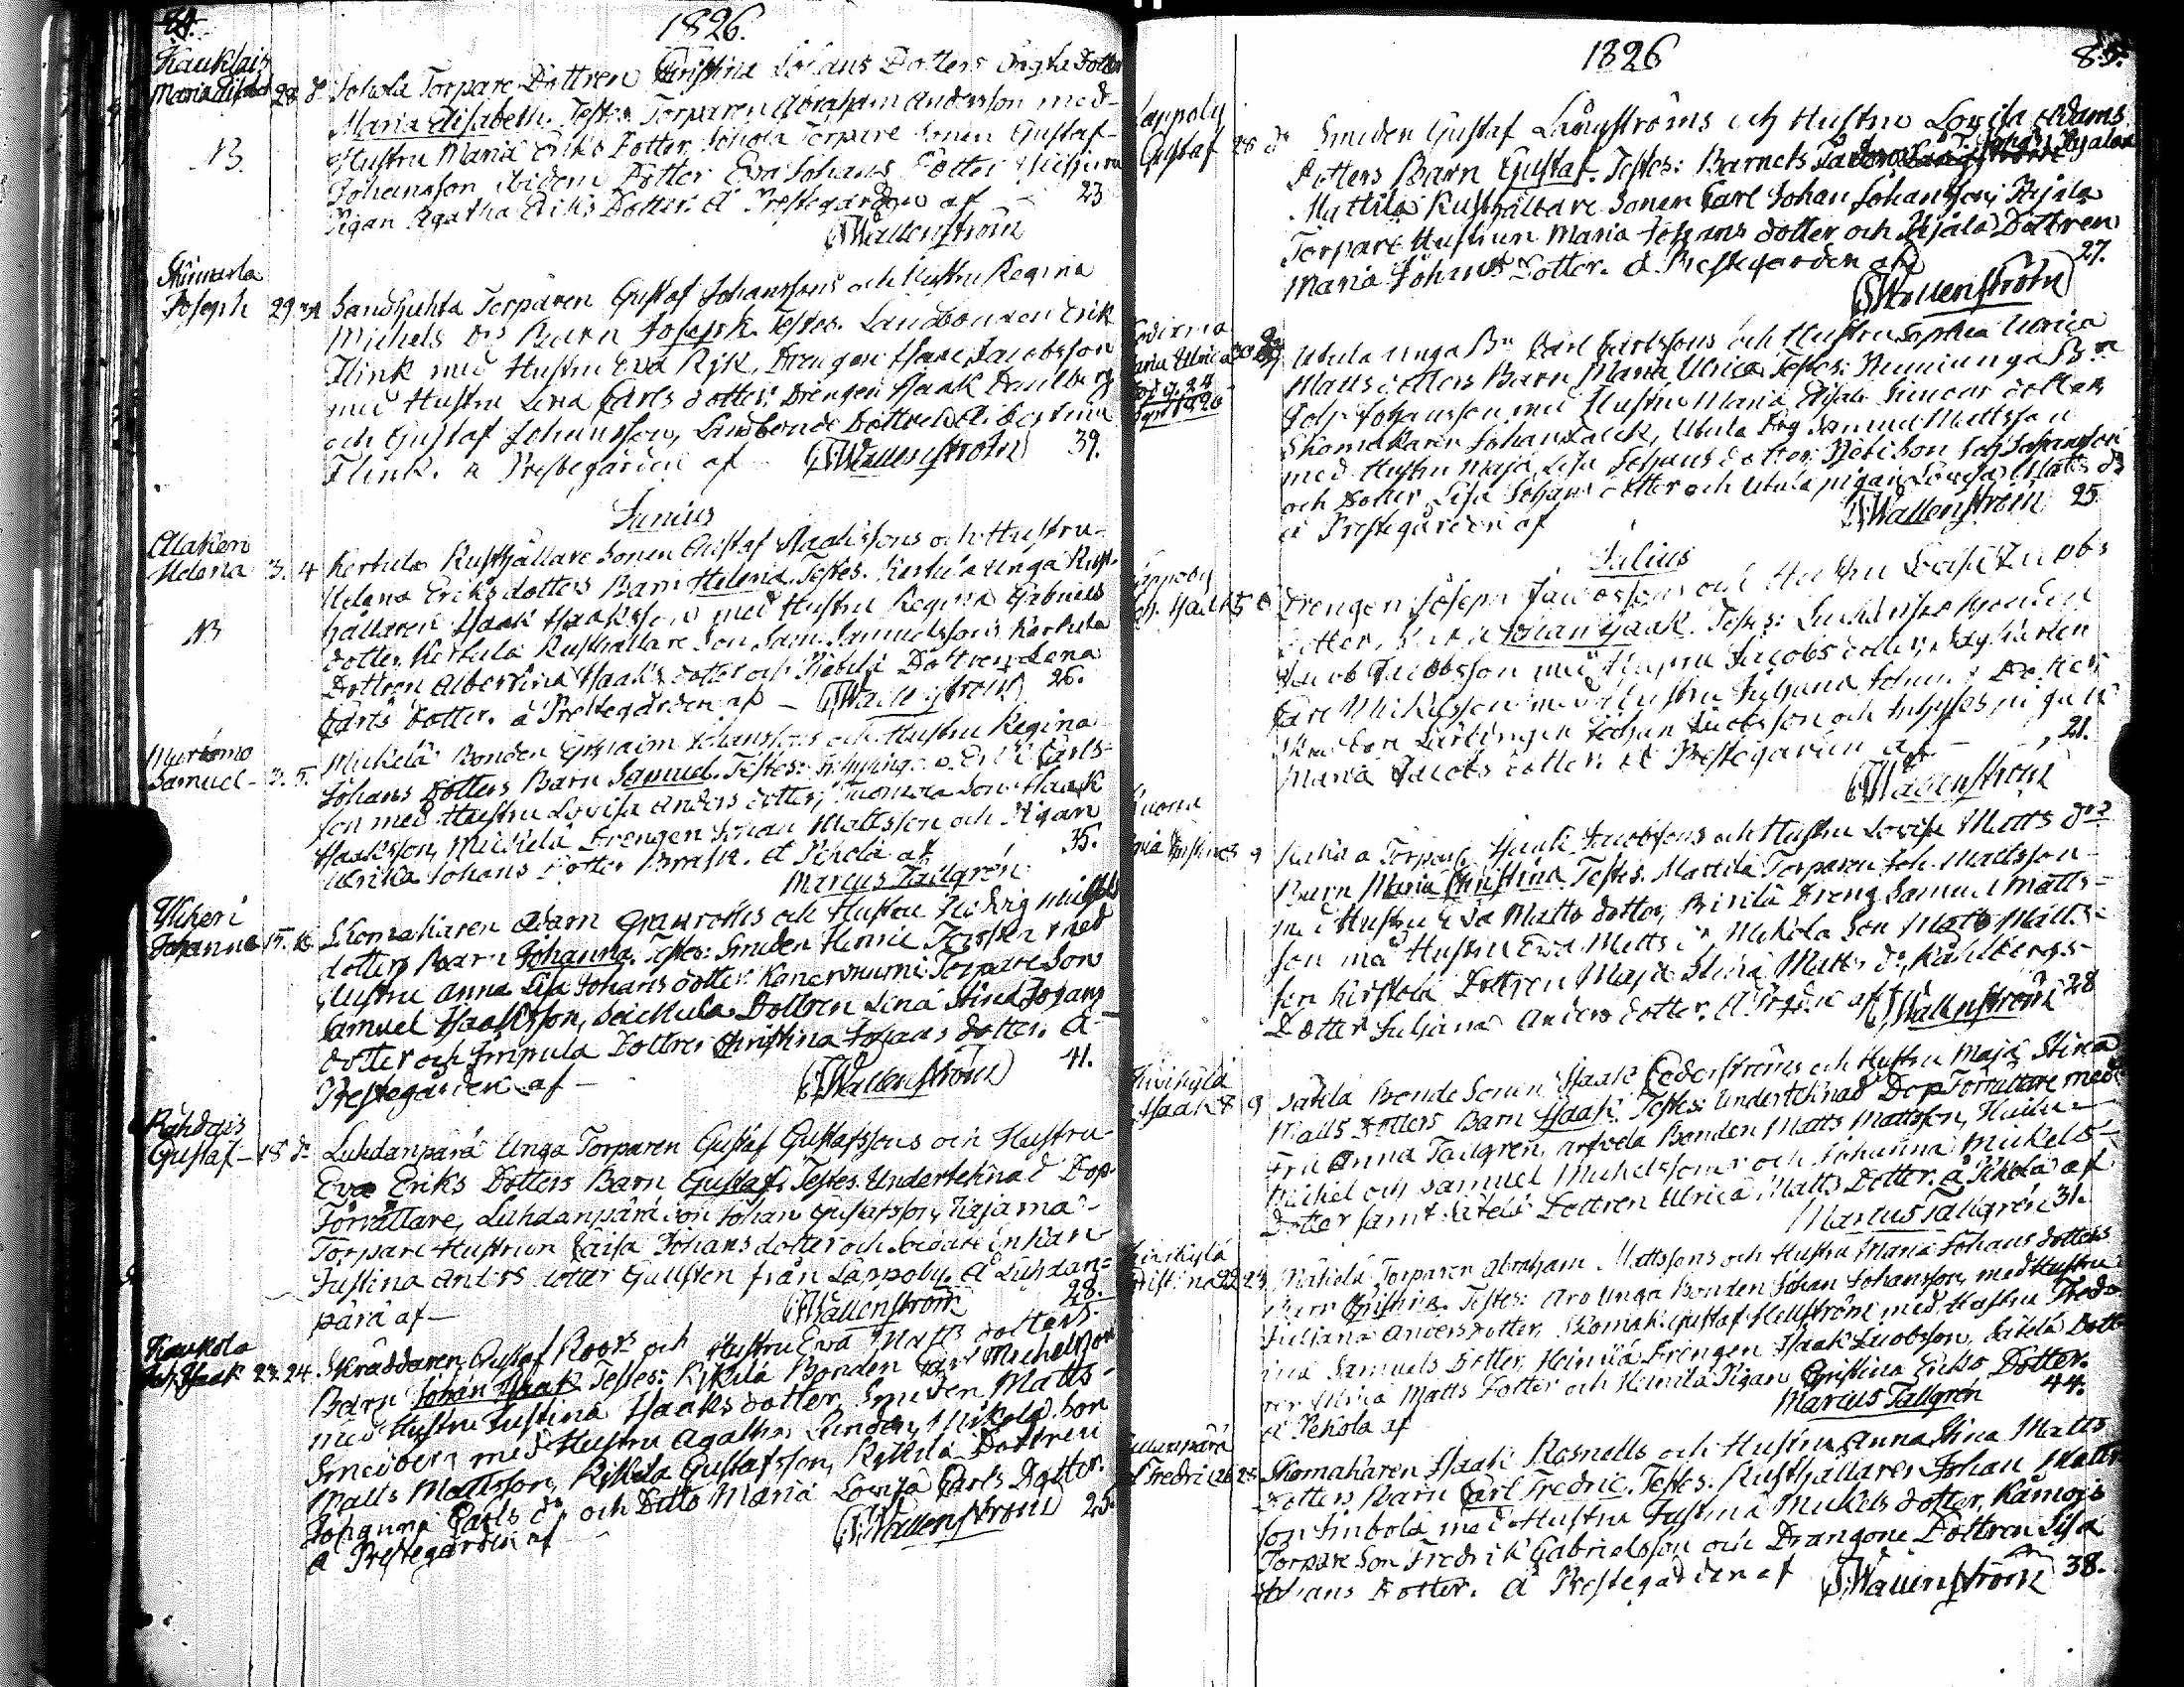 84.
1826.
Kauklais
Maria Elisabeth 28 d:o Johola Torpare Dottren Christina Johans Dotters Oägta Dotter
Maria Elisabeth. Testes: Torparen Abraham Andersson med
NB. Hustru Maria Eriks Dotter, Johola Torpare Sonen Gustaf
Johansson, ibidem Dotter Eva Johans Dotter
Pigan Agatha Eriks Dotter. å Prestegården af 23
Wallenström
Joseph 29 Sandhuhta Torparen Gustaf Johanssons och Hustru Regina
Michels D:rs Barn Joseph. Testes. Landbonden Erik
Flink med Hustru Eva Rjk, Drengen Isaac Jacobsson
med Hustru Lena Carls dotter, Drengen Isaak Dahlberg
och Gustaf Johansson, Landbonde Dottren Albertina
Flink. å Prestegården af Wallenström 39.
Junius
Alaken
Helena 3. 4 Kertula Rusthållare Sonen Gustaf Isaakssons och Hustru
Helena Eriks dotters Barn Helena. Testes. Kertula unga Rust-
hållaren Isaak Isaaksson med Hustru Regina Gabriels
NB dotter, Kertula Rusthållare Son Sam. Samuelsson, Kertula
Dottren Albertina Isaaks dotter och Dottren Lena
Carls Dotter. å Prestegården af — Wallenström 26.
Murtomo
Samuel 3. 5. Mickelä Bonden Ephraim Johanssons och Hustru Regina
Johans Dotters Barn Samuel. Testes: Erik Carls-
son med Hustru Lovisa Anders dotter, Tuomola Son Isaak
Isaaksson, Mickelä Drengen Johan Mattsson och Pigan
Ulrika Johans Dotter Brask. å Pehola af 35.
Marcus Tallgrén
Wiheri
Johanna 15. 16 Skomakaren Adam Granroths och Hustru Hedvig Michels
dotters Barn Johanna. Testes: Smeden Henric Forsten med
Hustru Anna Lisa Johans dotter, Konernummi Torpare Son
Samuel Isaaksson, Seickula Dottren Lena Stina Johans
dotter och Impula Dottren Christina Johans dotter. å
Prestegården af — Wallenström 41.
Rahdais
Gustaf — 18 d:o Luhdanpärä Unga Torparen Gustaf Gustafssons och Hustru
Eva Eriks Dotters Barn Gustaf. Testes. Undertecknad Dop-
Förrättare, Luhdanpärä Son Johan Gustafsson, Kajama
Torpare Hustrun Caisa Johans dotter och Enkan
Justina Anders dotter Gullsten från Lappoby. å Luhdan-
pärä af — Wallenström 28.
Kaukola
Joh. Isaak 23. 24. Skräddaren Gustaf Roos och Hustru Eva Matts dotters
Barn Johan Isaak. Testes: Kikila Bonden Carl Michelsson
med Hustru Justina Isaaks dotter, Smeden Matts
Smedberg med Hustru Agatha Linden, Mikola Son
Matts Mattsson, Kikkila Gustafsson, Kikkila Dottren
Johanna Carls d:r och Ditto Maria Lovisa Carls Dotter.
å Prestegården af Wallenström 25.
1826
85.
Lappoby
Gustaf 28 d:o Smeden Gustaf Långströms och Hustru Lovisa Adams
Dotters Barn Gustaf. Testes: Barnets
Mattila Rusthållare Sonen Carl Johan Johansson, Hjala
Torpare Hustrun Maria Johans dotter och Hjala Dottren
Maria Johans Dotter. å Prestegården af 27.
Wallenström
Maria Ulrica Utula unga B:n Carl Carlssons och Hustru Sophia Ulrica
Matts dotters Barn Maria Ulrica. Testes: Nummi unga B:n
Johansson med Hustru Maria Elisab. Simons dotter,
Skomakaren Johan Falck, Utula Drg Samuel Mattsson
med Hustru Maja Lisa Johans dotter, Son Joh. Johansson
och Dotter Lisa Johans dotter och Utula pigan Lovisa Matts d:r
å Prestegården af Wallenström 25.
Julius
Lappoby
Joh. Isaak 5 6 Drengen Joseph Jacobssons och Hustru Lovisa Jacobs
dotters Barn Johan Isaak. Testes:
Jacob Jacobsson med Hustru Jacobs dotter,
Carl Michelsson med Hustru Juliana Johans Dotter,
Skräddare Lärlingen Johan Jacobsson och pigan
Maria Jacobs dotter. å Prestegården af — 21.
Wallenström
Maria Christina 8 9 Torparen Isaak Jacobssons och Hustru Lovisa Matts d:rs
Barn Maria Christina. Testes. Mattila Torparen Joh. Mattsson
med Hustru Eva Matts dotter, Dreng Samuel Matts-
son med Hustru Eva Matts d:r Mikola Son Matts Matts-
son, Dottren Maja Stina Matts d:r,
Dotter Juliana Anders dotter. å Prgden af Wallenström 28
Isaak 8 9 Bonde Sonen Isaak Cederströms och Hustru Maja Stina
Matts Dotters Barn Isaak. Testes: Undertecknad Dop Förrättare med
Fru Anna Tallgrén, Bonden Matts Mattsson,
Mickel och Samuel Michelssoner och Johanna Mickels
Dotter samt Dottren Ulrica Matts Dotter. å Pehola af
Marcus Tallgrén 31.
Christina 22 23 Torparen Abraham Mattssons och Hustru Maria Johans dotters
Barn Christina. Testes: Aro Unga Bonden Johan Johansson, med Hustru
Juliana Anders dotter, Skomak. Gustaf Hellström med Hustru Fredo-
rica Samuels Dotter, Heinilä Drengen Isaak Jacobsson, Dott-
ren Ulrica Matts Dotter och Heinilä Pigan Christina Eriks Dotter.
å Pehola af Marcus Tallgrén 44.
Carl Fredric 26 28 Skomakaren Isaak Rosnells och Hustru Anna Stina Matts
Dotters Barn Carl Fredric. Testes. Rusthållaren Johan Matts-
son Simbola med Hustru Justina Mickels dotter,
Torpare Son Fredrik Gabrielsson och Drangone Dottren Lisa
Johans Dotter. å Prestegården af Wallenström 38.